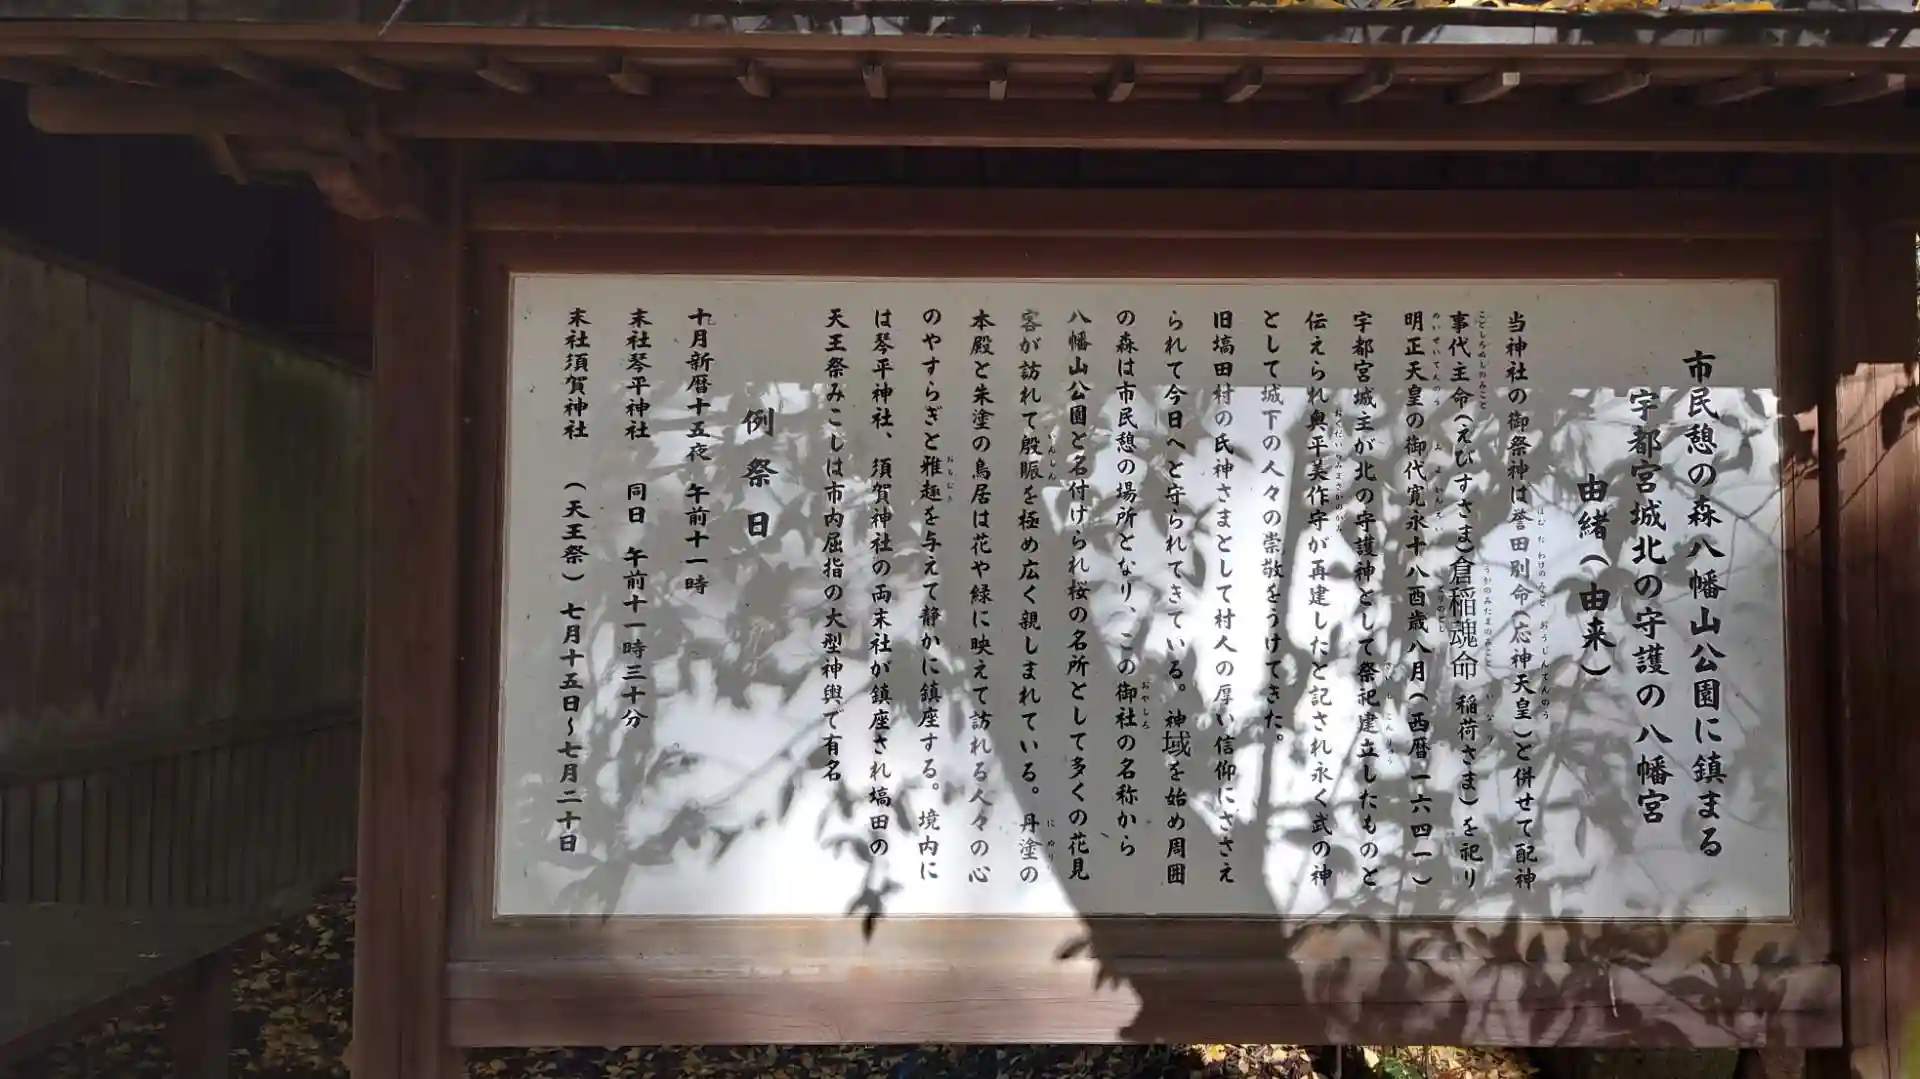 市民憩の森八幡山公園に鎮まる
宇都宮城北の守護の八幡宮
由緒(由来)
当神社の御祭神は誉田別命(応神天皇)と併せて配神
事代主命(えびすさま)倉稲魂命 稲荷さま)を祀り
明正天皇の御代寛永十八酉歳八月(西暦一六四一)
宇都宮城主が北の守護神として祭祀建立したものと
伝えられ奥平美作守が再建したと記され永く武の神
として城下の人々の崇敬をうけてきた。
旧塙田村の氏神さまとして村人の厚い信仰にささえ
られて今日へと守られてきている。神域を始め周囲
の森は市民憩の場所となり、この御社の名称から
八幡山公園と名付けられ桜の名所として多くの花見
客が訪れて殷賑を極め広く親しまれている。丹塗の
本殿と朱塗の鳥居は花や緑に映えて訪れる人々の心
のやすらぎと雅趣を与えて静かに鎮座する。境内に
は琴平神社、須賀神社の両末社が鎮座され塙田の
天王祭みこしは市内屈指の大型神輿で有名
例祭日
十月新暦十五夜 午前十一時
末社琴平神社 同日 午前十一時三十分
末社須賀神社 (天王祭)七月十五日~七月二十日